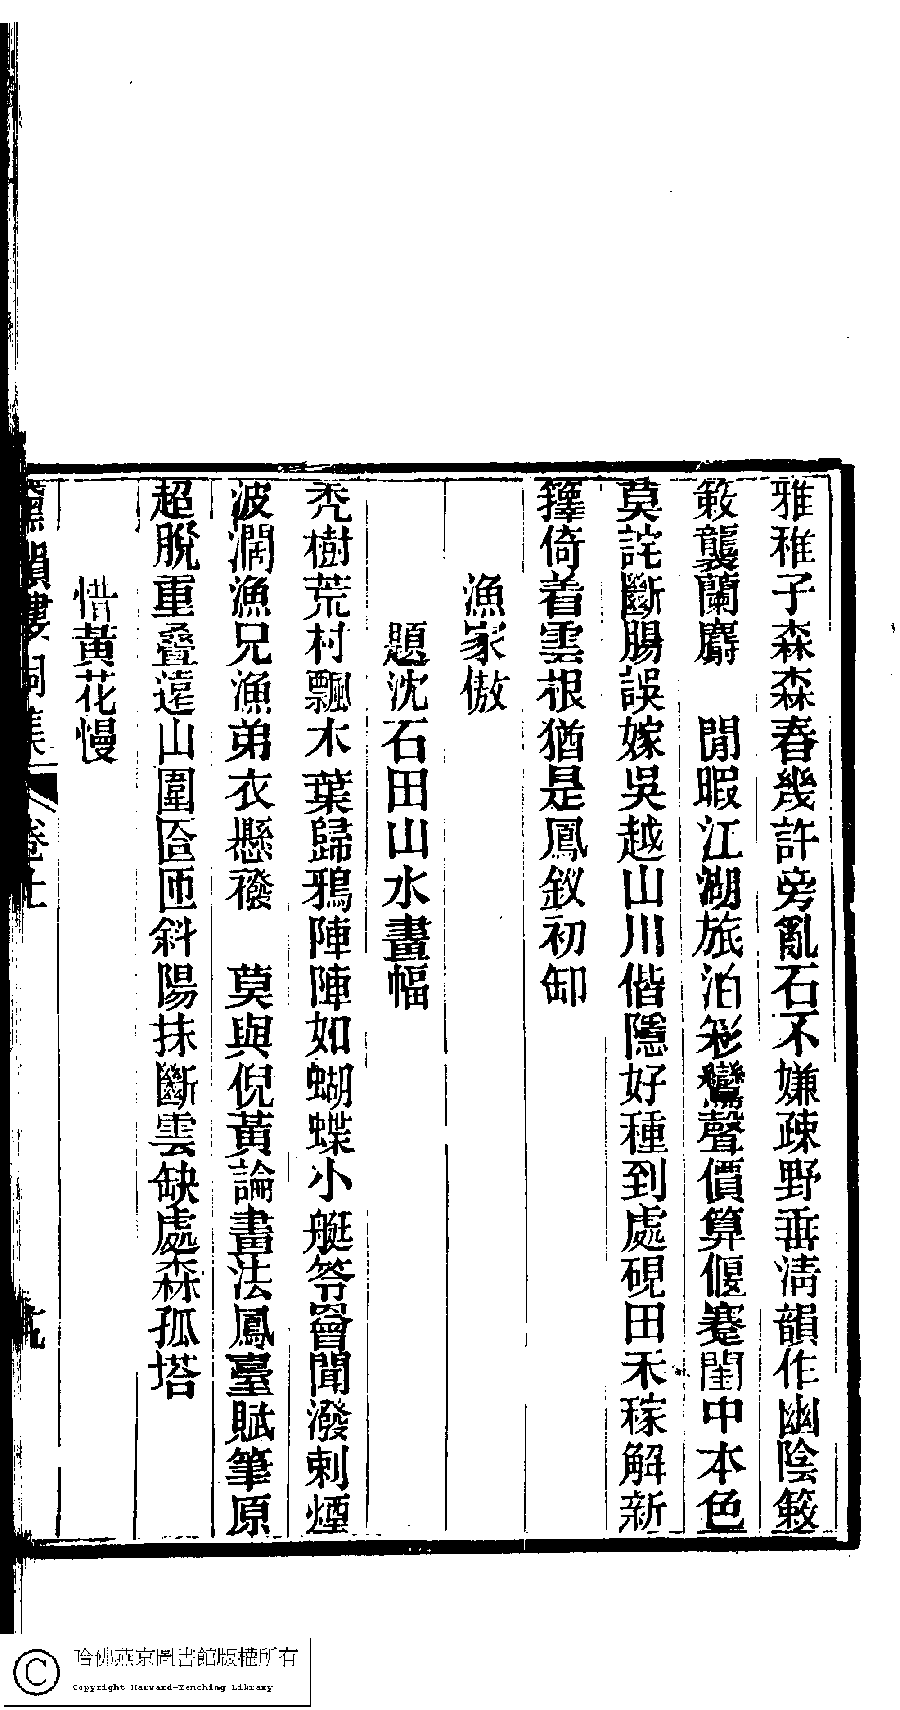 雅稚子森森春幾許旁亂石不嫌疎野垂淸韻作幽陰籔
籔襲蘭麝　閒暇江湖旅泊彩鸞聲價算偃蹇閨中本色
莫詫斷腸誤嫁吳越山川偕隱好種到處硯田禾稼解新
籜倚着雲根猶是鳳釵初卸
漁家傲
題沈石田山水畫幅
禿樹荒村飄木葉歸鴉陣陣如蝴蝶小艇笭箵聞潑剌煙
波濶漁兄漁弟衣懸襏　莫與倪黃論畫法鳳臺賦筆原
超脫重疊遠山圍匼匝斜陽抹斷雲缺處森孤塔
惜黃花慢
韻樓詞集　卷上
哈佛燕京圖書館版權所有
Copyright Harvard-Yenching Library